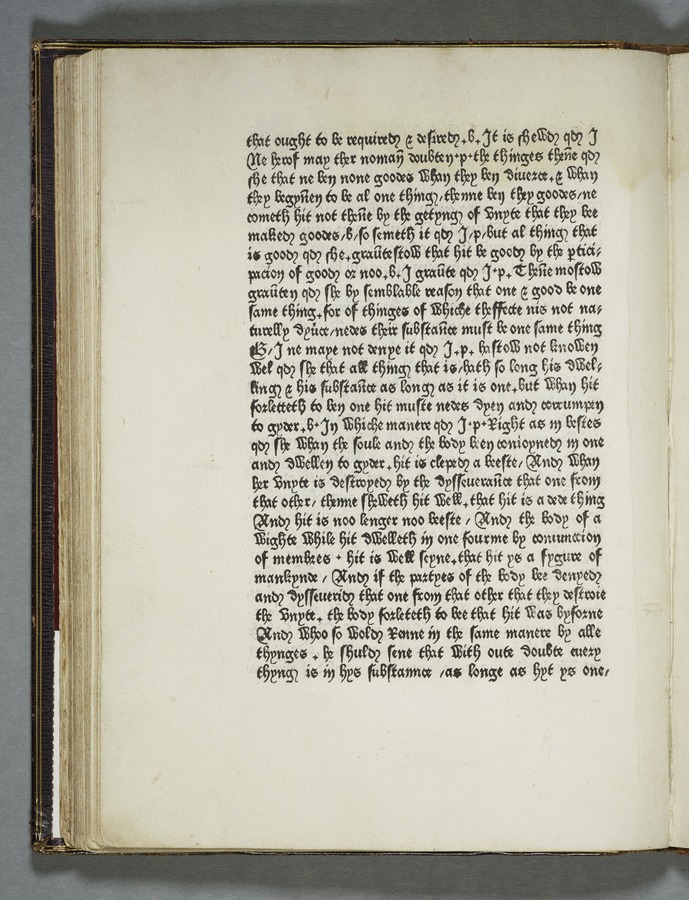 that ought to be required & desired.b. It is shewd qd I
Ne herof may ther noman̄ doubten.p.the thinges then̄e qd
she that ne ben none goodes whan they ben diuerce.& whan
they begyn̄en to be al one thing,thenne ben they goodes/ne
cometh hit not then̄e by the getyng of vnyte that they bee
maked goodes/b/so semeth it qd I/p/but al thing that
is good qd she.grau̅testow that hit be good by the ꝑtici-
pacion of good or noo.b.I grau̅te qd I.p.Then̄e mostow
grau̅ten qd she by semblable reason that one & good be one
same thing.for of thinges of whiche theffecte nis not na-
turelly dyu̅ce/nedes their substan̄ce must be one same thing
B/I ne maye not denye it qd I.p. hastow not knowen
wel qd she that all thing that is/hath so long his dwel-
king & his substan̄ce as long as it is one.but whan hit
forletteth to ben one hit muste nedes dyen and corrumpen
to gyder.b.In whiche manere qd I.p.Right as in bestes
qd she whan the soule and the body been conioyned in one
and dwellen to gyder.hit is cleped a beeste/And whan
her vnyte is destroyed by the dysseueran̄ce that one from
that other/thenne sheweth hit well.that hit is a dede thing
And hit is noo lenger noo beeste / And the body of a
wighte while hit dwelleth in one fourme by coniunction
of membres . hit is well seyne.that hit ys a fygure of
mankynde / And if the partyes of the body bee denyed
and dysseuerid that one from that other that they destroie
the vnyte. the body forleteth to bee that hit was byforne
And whoo so wold renne in the same manere by alle
thynges . he shuld sene that with oute doubte euery
thyng is in hys substannce /as longe as hyt ys one/